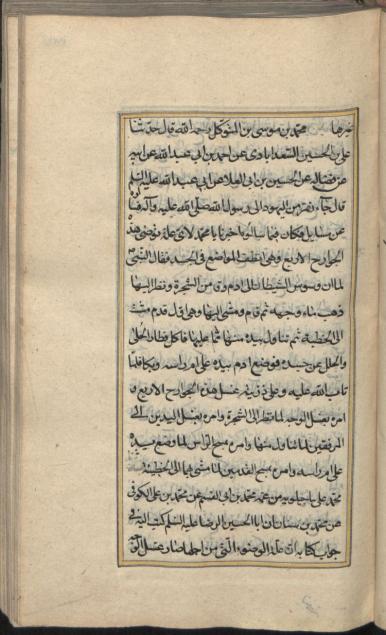 غيرها محمد بن موسى بن المتوكل رحمه الله قال حدثنا
على بن الحسين السعدابادى عن احمد بن ابى عبد الله عن ابيه
عن فضاله عن الحسين بن ابى العلا عن ابى عبد الله عليه السلم
قال جاء نفر من اليهود الى رسول الله صلى الله عليه وآله فسألوه
عن مسايل فكان فيما سالوه اخبرنا يا محمد لاى علة توضى هذه
الجوارح الاربع وهى انظف المواضع فى الجسد فقال النبى ص
لما ان وسوس الشيطان الى ادم ودنى من الشجرة ونظر اليها
ذهب ماء وجهه ثم قام ومشى اليها وهى اول قدم مشت
الى الخطيئة ثم تناول بيده منها مما عليها فاكل فطار الحلى
والحلل عن جسده فوضع ادم يده على ام راسه وبكا فلما
تاب الله عليه وعلى ذريته غسل هذه الجوارح الاربع و
امره بغسل الوجه لما نظر الى الشجرة وامره بغسل اليدين الى
المرفقين لما تناول منها وامره بمسح الراس لما وضع يده
على ام راسه وامره بمسح القدمين لما مشى بهما الى الخطيئة
محمد بن على ماجيلويه عن عمه محمد بن ابى القسم عن محمد بن على الكوفى
عن محمد بن سنان ان ابا الحسين الرضا عليه السلم كتب اليه فى
جواب كتابه ان علة الوضوء التى من اجلها صار غسل الوجه